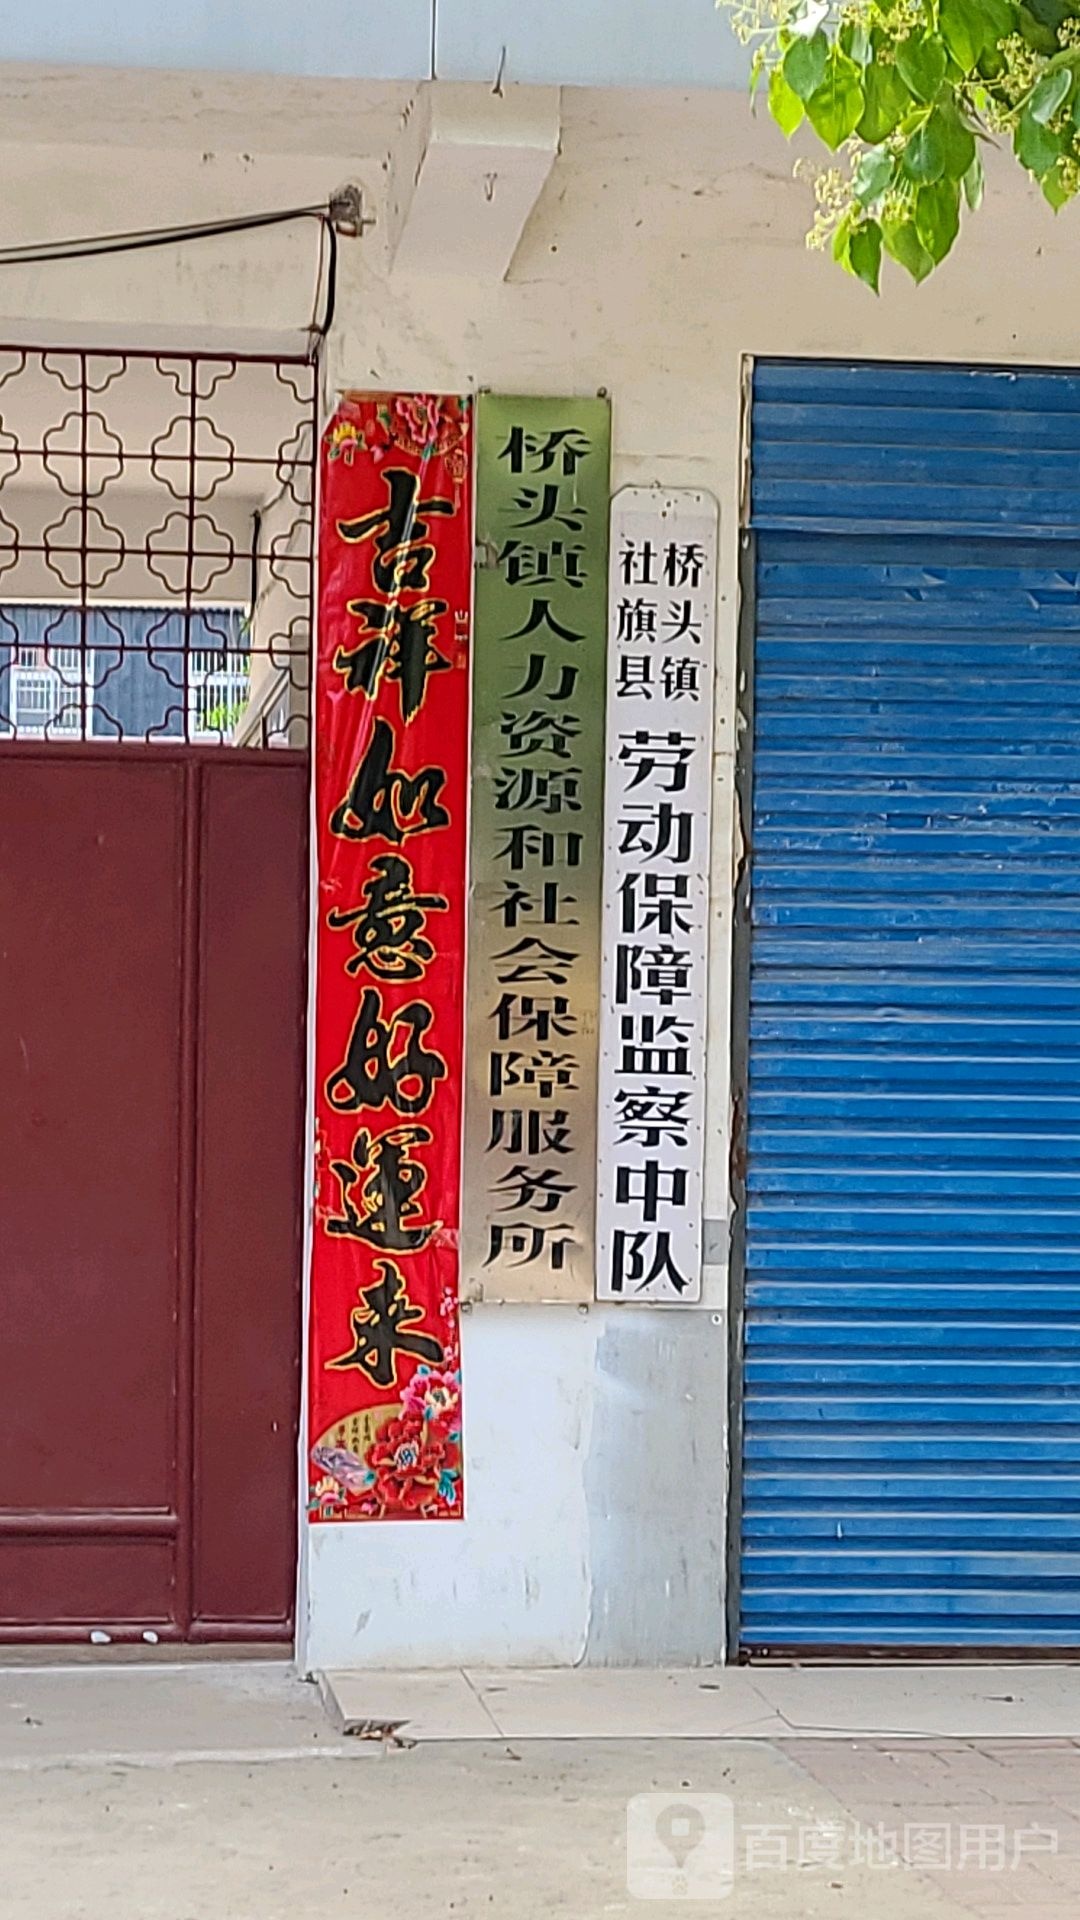 吉祥如意好運来
桥头镇人力资源和社会保障服务所
社旗县
桥头镇
劳动保障监察中队
百度地图用户